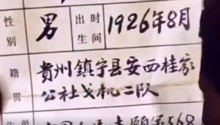 性别 男 出生时间 1926年8月
籍贯 貴州镇宁县安西桂家
公社戈机二队